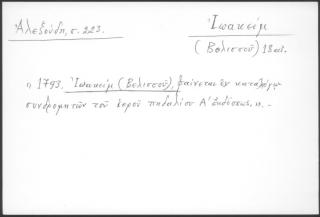 Ἀλεξούδη, σ. 223.
Ἰωακείμ
(Βολισσοῦ) 18 αἰ.
1793, Ἰωακείμ (Βολισσοῦ), φαίνεται ἐν καταλόγῳ
συνδρομητῶν τοῦ ἱεροῦ πηδαλίου Α' ἐκδόσεως,